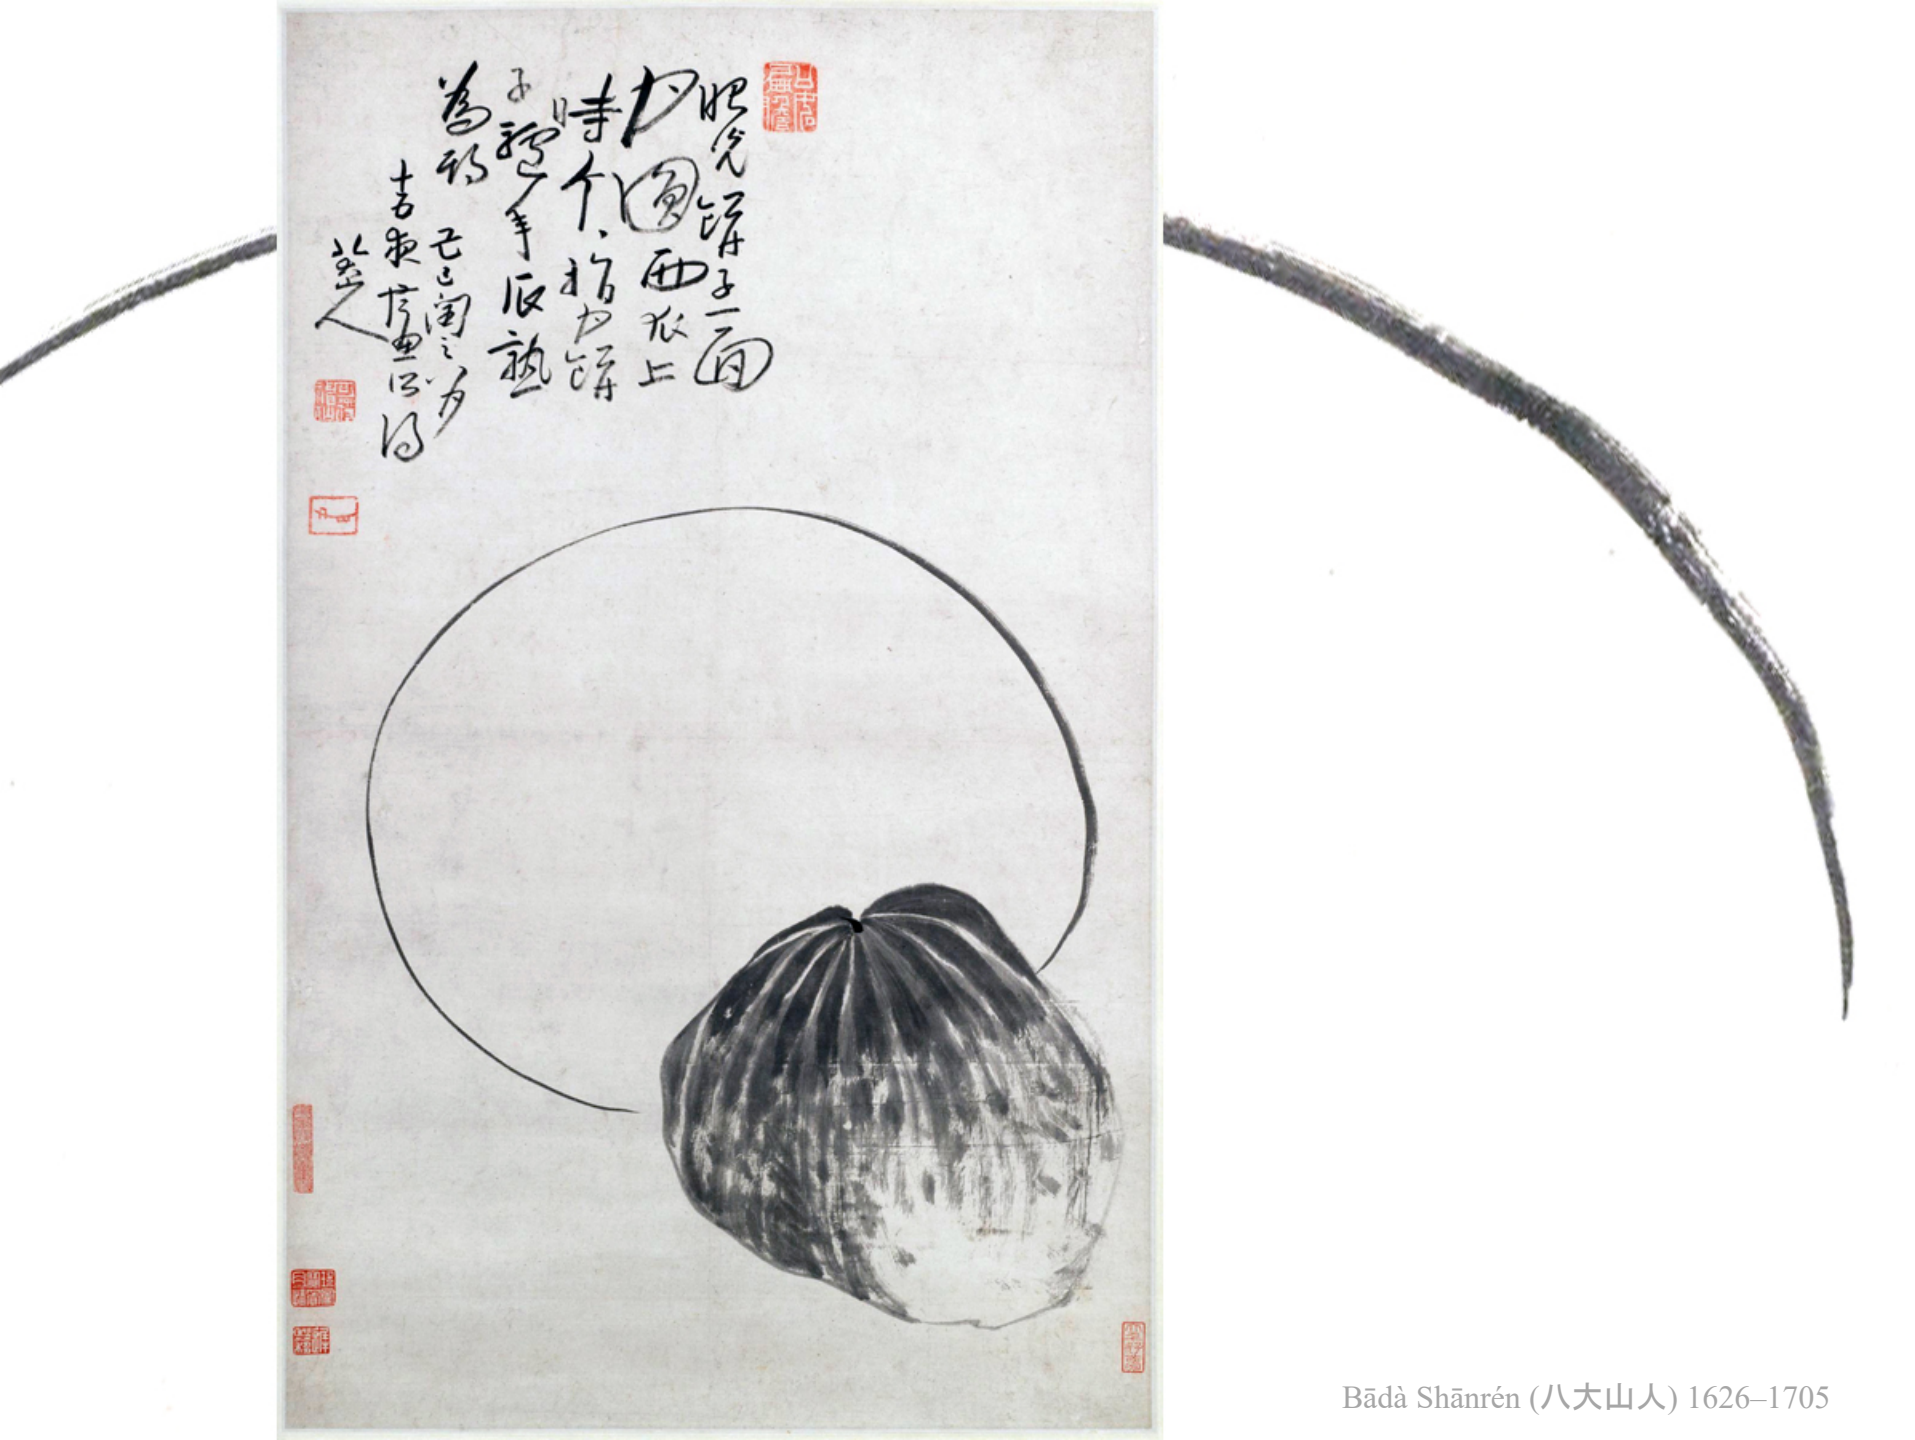 眼光餅子一面
月圓西瓜上
時个个指月餅
子驢年瓜熟
為期
己巳閏之八月
十五夜
畫所
得
八大山人
Bādà Shānrén (八大山人) 1626–1705